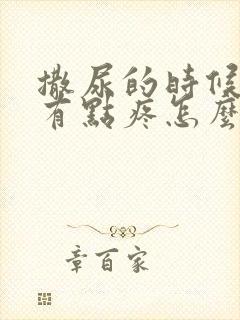 撒尿的時候
有點疼怎麼
章百家